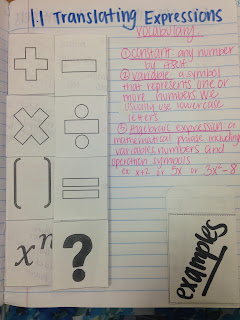 1.1 Translating Expressions
Vocabulary
① constant: any number
by itself
② variable: a symbol
that represents one or
more numbers. We
usually use lowercase
letters
③ Algebraic expression: a
mathematical phrase including
variables, numbers and
operation symbols
ex x+2 or 5x or 3x²-8
+ −
× ÷
( ) =
xⁿ ?
examples